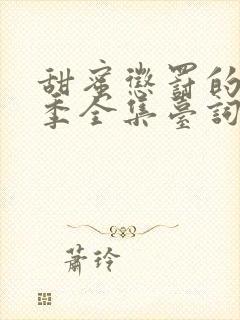 甜蜜懲罰的
季全集臺詞
蕭玲